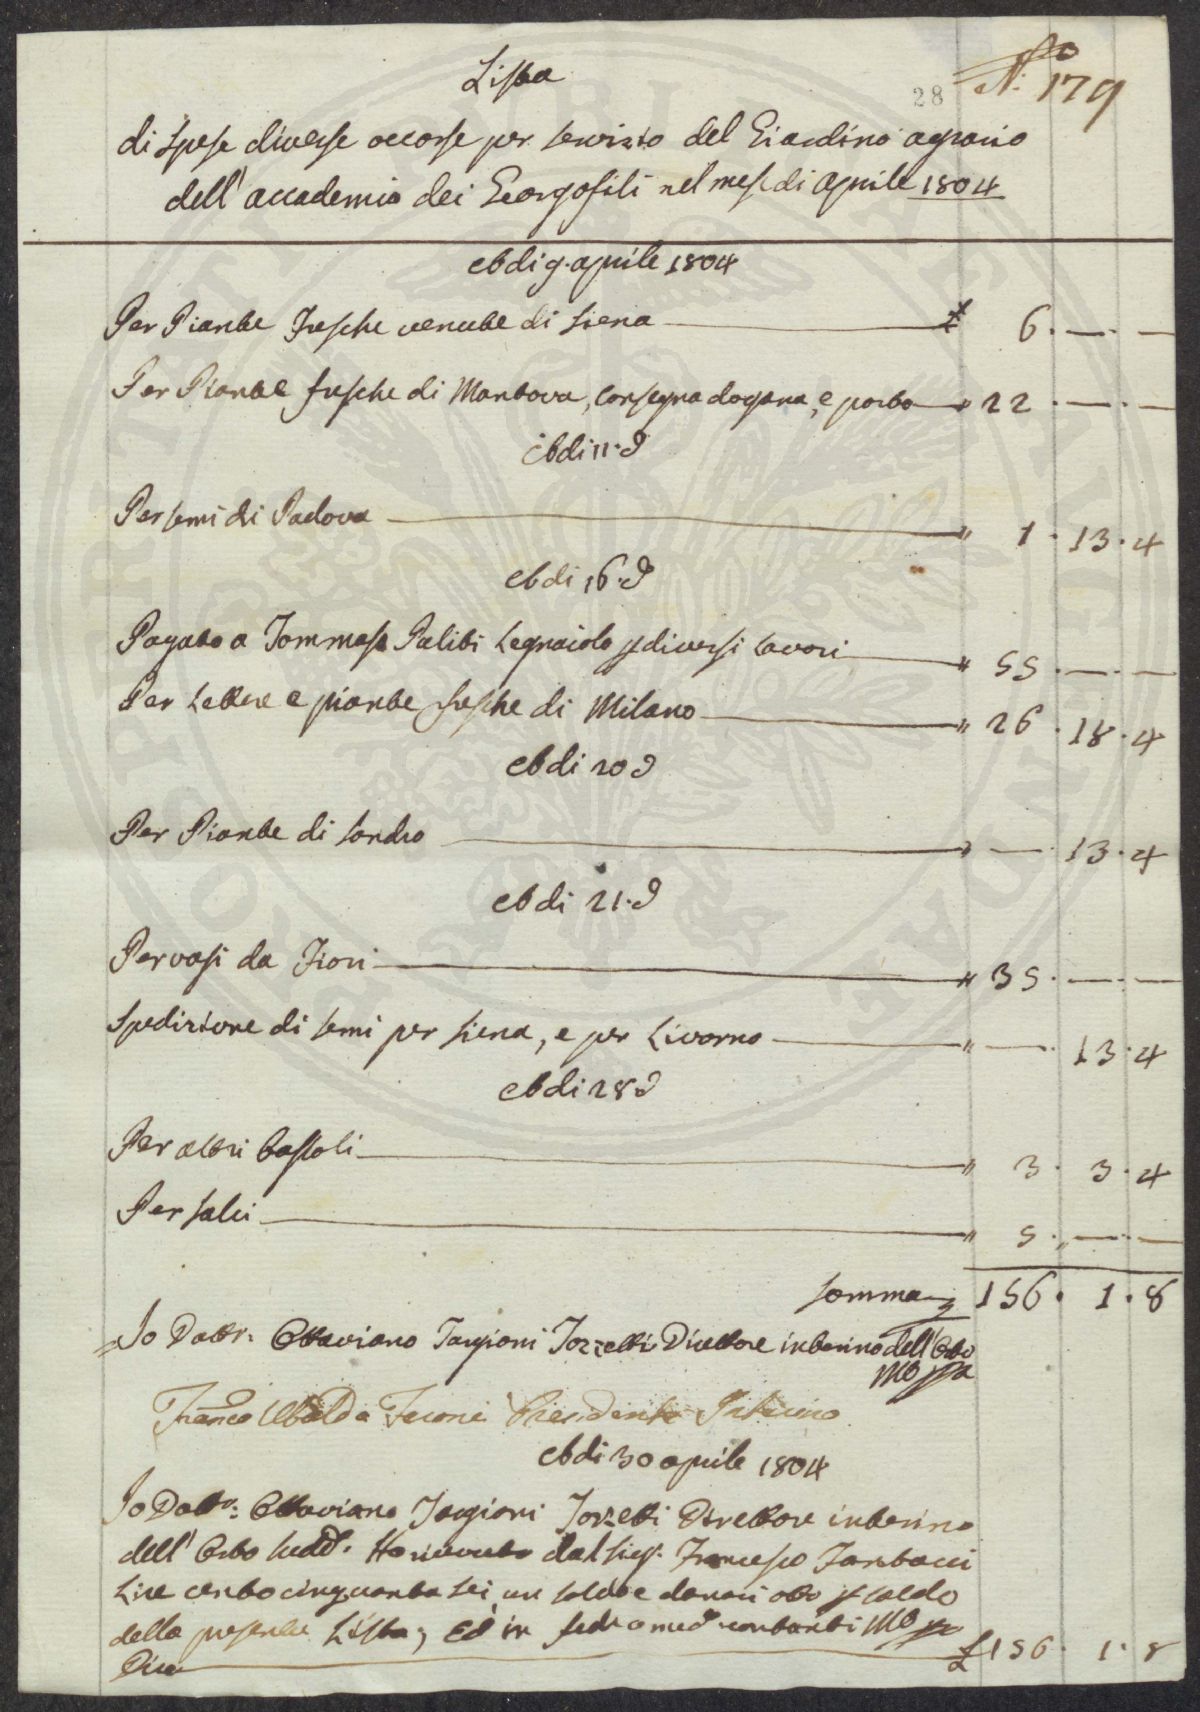 N.o 179
28
Lista
di Spese diverse occorse per servizio del Giardino agrario
dell'accademia dei Georgofili nel mese di aprile 1804
Addi 9. aprile 1804
Per Piante fresche venute di Siena £ 6. — —
Per Piante fresche di Mantova, consegna dogana, e porto " 22 . — —
Addi 11. d
Per semi di Padova " 1 . 13 . 4
Addi 16. d
Pagato a Tommaso Paliti Legnaiolo p diversi lavori " 55 . — —
Per Lettere e piante fresche di Milano " 26 . 18 . 4
Addi 20 d
Per Piante di " — . 13 . 4
Addi 21. d
Per vasi da Fiori " 35 . — —
Spedizione di semi per Siena, e per Livorno " — . 13 . 4
Addi 28 d
Per altri Bastoli " 3 . 3 . 4
Per salci " 5 . — —
Somma 156 . 1 . 8
Io Dottr. Ottaviano Targioni Tozzetti Direttore interino dell'Orto
mo ppa
Franco Ubaldo Feroni Presidente Interino
Addi 30 aprile 1804
Io Dottr: Ottaviano Targioni Tozzetti Direttore interino
dell' Orto sudd. Ho ricevuto dal Sig. Francesco
Lire centocinquanta sei, un soldo e danari otto p saldo
della presente Lista, Ed in fede a med contanti mo ppa
Dico £ 156 . 1 . 8